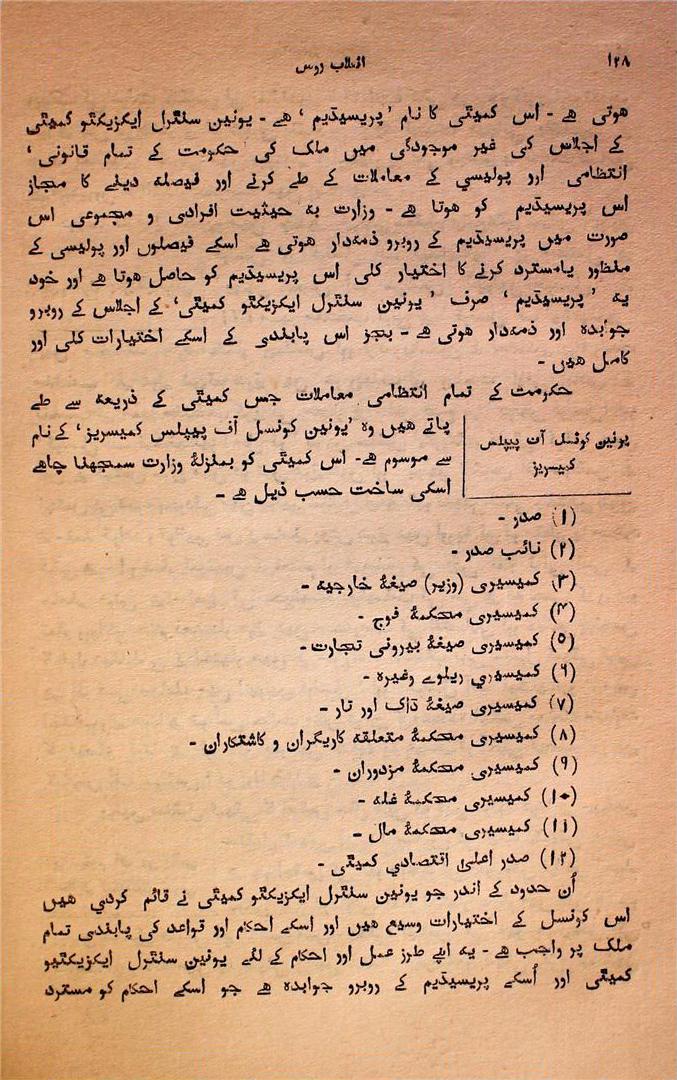 ۱۲۸
انقلاب روس
ہوتی ہے - اس کمیٹی کا نام ’پریسیڈیم‘ ہے - یونین سنٹرل ایکزیکٹو کمیٹی
کے اجلاس کی غیر موجودگی میں ملک کی حکومت کے تمام قانونی‘
انتظامی ارو پولیسی کے معاملات کے طے کرنے اور فیصلہ دینے کا مجاز
اس پریسیڈیم کو ہوتا ہے - وزارت بہ حیثیت افرادی و مجموعی اس
صورت میں پریسیڈیم کے روبرو ذمہدار ہوتی ہے اسکے فیصلوں اور پولیسی کے
منظور یامسترد کرنے کا اختیار کلی اس پریسیڈیم کو حاصل ہوتا ہے اور خود
یہ ’پریسیڈیم‘ صرف ’یونین سنٹرل ایکزیکٹو کمیٹی‘ کے اجلاس کے روبرو
جوابدہ اور ذمہدار ہوتی ہے - بجز اس پابندی کے اسکے اختیارات کلی اور
کامل ہیں -
حکومت کے تمام انتظامی معاملات جس کمیٹی کے ذریعہ سے طے
یونین کونسل آف پیپلس
کمیسریز
پاتے ہیں وہ ’یونین کونسل آف پیپلس کمیسریز‘ کے نام
سے موسوم ہے - اس کمیٹی کو بمنزلۂ وزارت سمجھنا چاہے
اسکی ساخت حسب ذیل ہے -
(۱) صدر -
(۲) نائب صدر -
(۳) کمیسیری (وزیر) صیغۂ خارجیہ -
(۴) کمیسیری محکمۂ فوج -
(۵) کمیسیری صیغۂ بیرونی تجارت -
(۶) کمیسیری ریلوے وغیرہ -
(۷) کمیسیری صیغۂ ڈاک اور تار -
(۸) کمیسیری محکمۂ متعلقہ کاریگران و کاشتکاران -
(۹) کمیسیری محکمۂ مزدوران -
(۱۰) کمیسیری محکمۂ غلہ -
(۱۱) کمیسیری محکمۂ مال -
(۱۲) صدر اعلیٰ اقتصادی کمیٹی -
اُن حدود کے اندر جو یونین سنٹرل ایکزیکٹو کمیٹی نے قائم کردی ہیں
اس کونسل کے اختیارات وسیع ہیں اور اسکے احکام اور قواعد کی پابندی تمام
ملک پر واجب ہے - یہ اپنے طرز عمل اور احکام کے لئے یونین سنٹرل ایکزیکٹیو
کمیٹی اور اُسکے پریسیڈیم کے روبرو جوابدہ ہے جو اسکے احکام کو مسترد